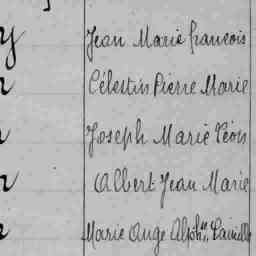 Jean Marie francois
Célestin Pierre Marie
Joseph Marie Léon
Albert Jean Marie
Marie Ange Alph.se